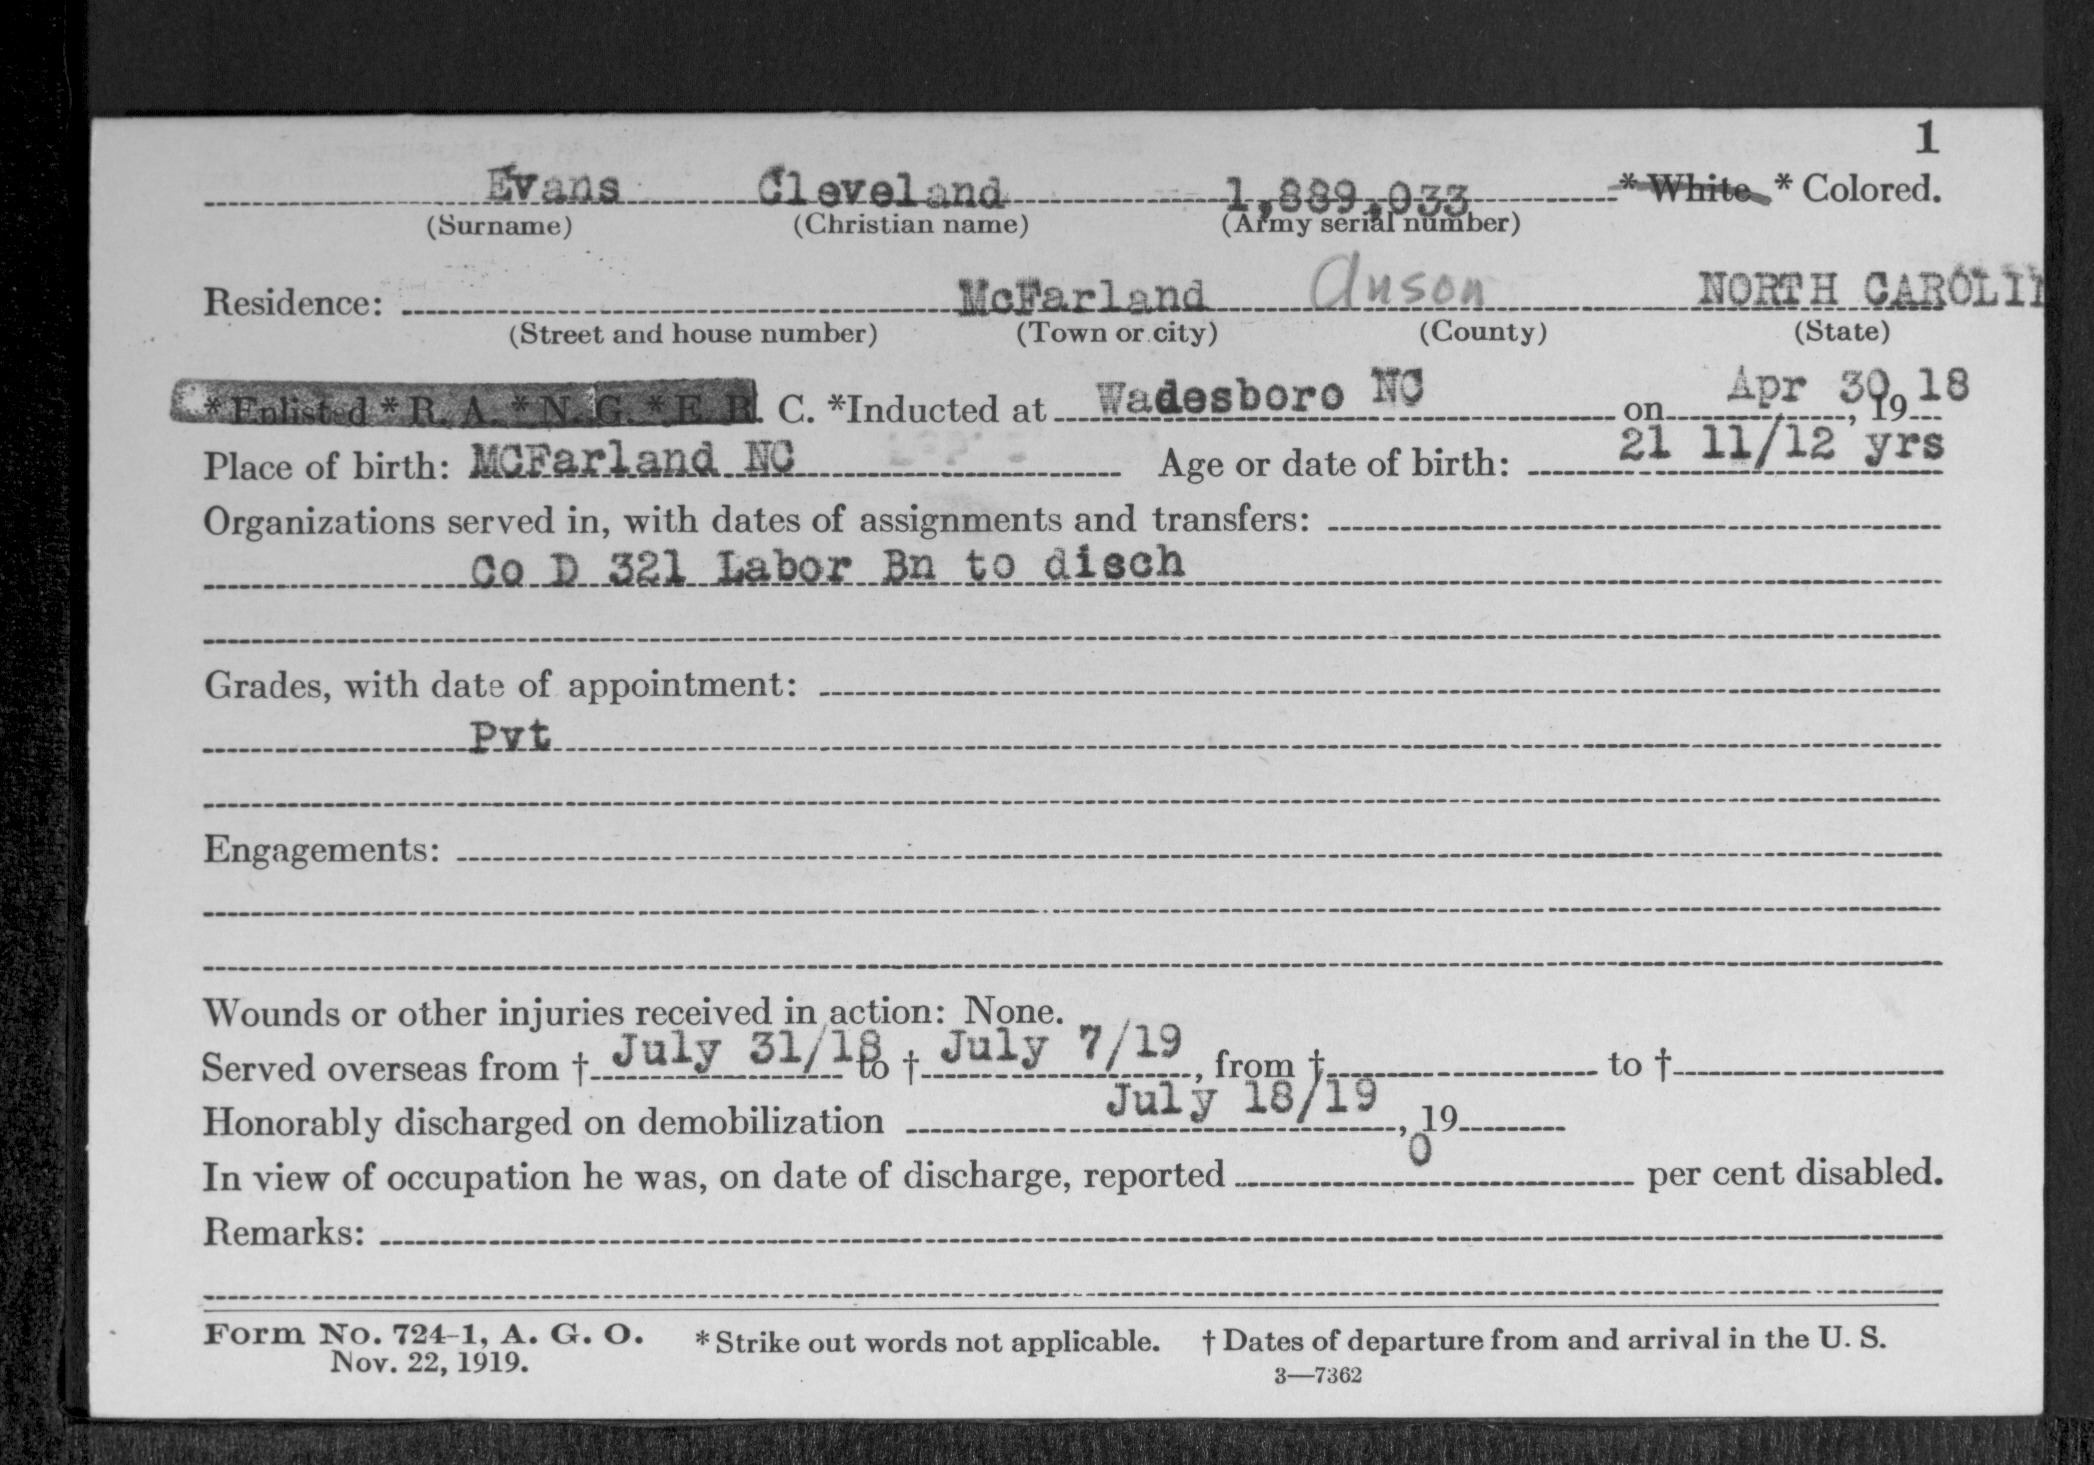 1
Evans Cleveland 1,889,033 * White * Colored.
(Surname) (Christian name) (Army serial number)
Residence: McFarland Anson NORTH CAROLIN
(Street and house number) (Town or city) (County) (State)
* Enlisted * R. A. * N. G. * E. R. C. *Inducted at Wadesboro NC on Apr 30, 19 18
Place of birth: MCFarland NC Age or date of birth: 21 11/12 yrs
Organizations served in, with dates of assignments and transfers:
Co D 321 Labor Bn to disch
Grades, with date of appointment:
Pvt
Engagements:
Wounds or other injuries received in action: None.
Served overseas from † July 31/18 to † July 7/19, from † to †
Honorably discharged on demobilization July 18/19, 19
In view of occupation he was, on date of discharge, reported 0 per cent disabled.
Remarks:
Form No. 724-1, A. G. O. * Strike out words not applicable. † Dates of departure from and arrival in the U. S.
Nov. 22, 1919. 3—7362